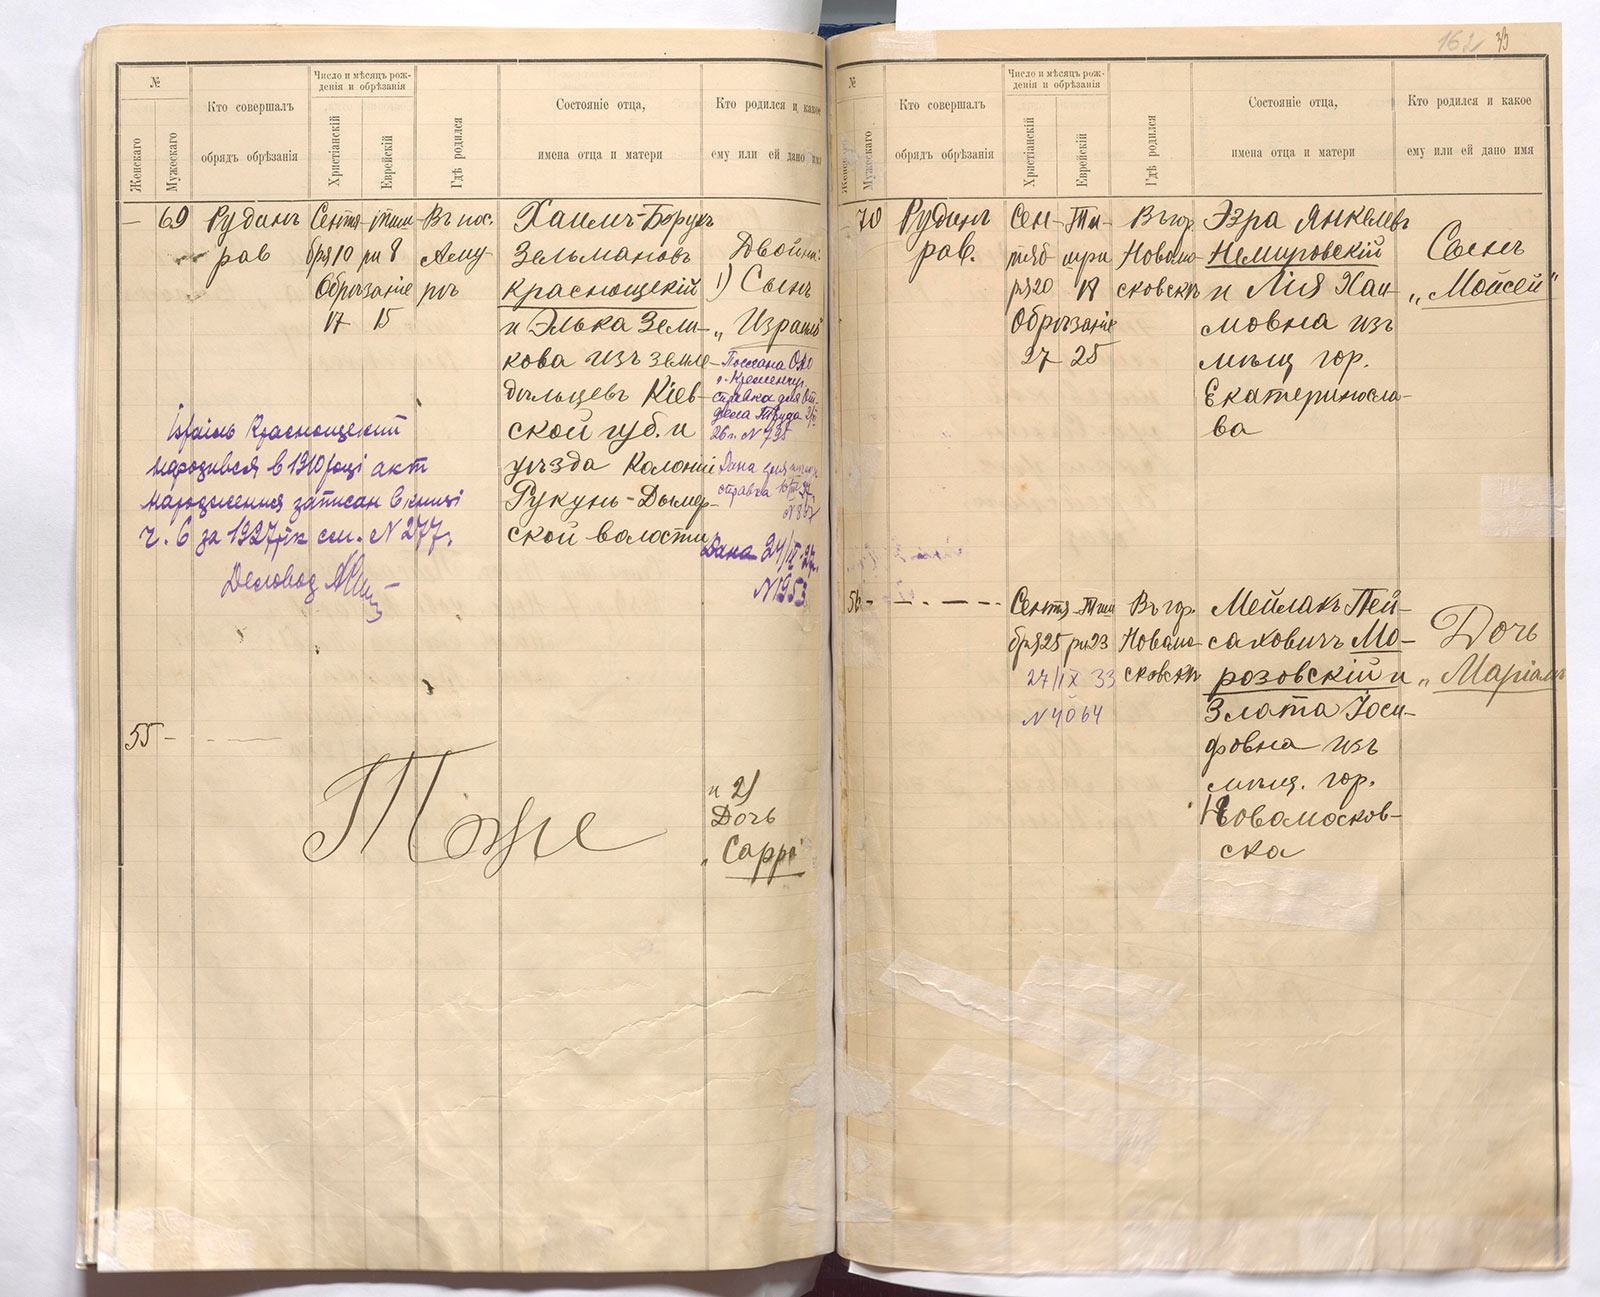 №
Женскаго
Мужескаго
Кто совершалъ
обрядъ обрѣзанія
Число и мѣсяцъ рож-
денія и обрѣзанія
Христіанскій
Еврейскій
Гдѣ родился
Состояніе отца,
имена отца и матери
Кто родился и какое
ему или ей дано имя
— 69
Руданъ
рав
Сентя-
бря 10
Обрѣзаніе
17 15
тиш
ри 8
Въ пос.
Аму
рѣ
Хаимъ-Борухъ
Зельмановъ
Краснощекій
и Элька Зели-
кова изъ земле-
дѣльцевъ Кіев-
ской губ. и
уѣзда Колоніи
Рукунь-Дымер-
ской волости
Двойни:
1) Сынъ
„ Израиль
Послана
г. Кременчуг
справка для От
дела Труда
26 г. N 795
Дана
справка
Дана 24/IX-27 г.
N 1953
Ізраіль Краснощекий
народився в 1910 році акт
народження записан в книзі
ч. 6 за 1927 рік ст. N 277.
Деловод
55 —
Тоже
и 2)
Дочь
„ Сарра
162 33
№
Женскаго
Мужескаго
Кто совершалъ
обрядъ обрѣзанія
Число и мѣсяцъ рож-
денія и обрѣзанія
Христіанскій
Еврейскій
Гдѣ родился
Состояніе отца,
имена отца и матери
Кто родился и какое
ему или ей дано имя
70
Руданъ
рав.
Сен-
тяб
ря 20
Обрѣзаніе
27 25
Ти-
шри
18
Въ гор.
Новомо-
сковскѣ
Эзра Янкелевъ
Немировскій
и Лія Хаи-
мовна изъ
мѣщ гор.
Екатериносла-
ва
Сынъ
„Мойсей“
56 —
Сентя-
бря 25
Тиш
ри 23
27/IX 33
N 4064
Въ гор.
Новомо-
сковскѣ
Мейлахъ Пей-
саховичъ Мо-
розовскій и
Злата Іоси-
фовна изъ
мѣщ. гор.
Новомосков-
ска
Дочь
„ Маріамъ